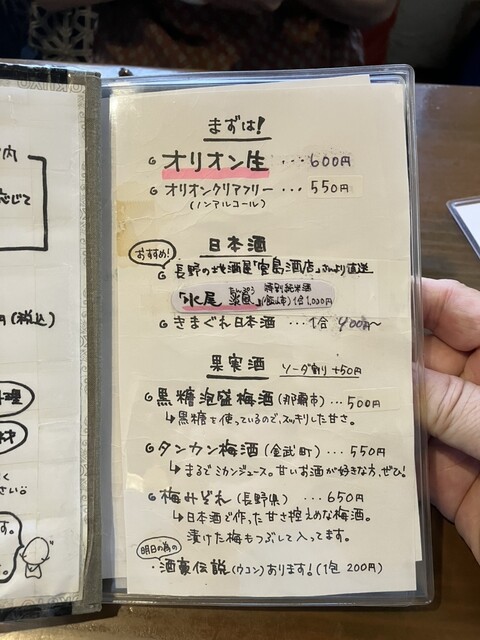 内
応じて
円(税込)
理
く
さい。
す。
まずは!
オリオン生 ... 600円
オリオンクリアフリー ... 550円
(ノンアルコール)
日本酒
おすすめ!
長野の地酒屋「宮島酒店」さんより直送
「水尾 特別純米酒
(飯山市) 1合1,000円
きまぐれ日本酒 ... 1合 400円〜
果実酒 ソーダ割り +50円
黒糖泡盛梅酒(那覇市)... 500円
↳黒糖を使っているので、スッキリした甘さ。
タンカン梅酒(金武町) ... 550円
↳まるでミカンジュース。甘いお酒が好きな方、ぜひ!
梅みぞれ(長野県) ... 650円
↳日本酒で作った甘さ控えめな梅酒。
漬けた梅もつぶして入ってます。
明日の為の
・酒豪伝説(ウコン)あります!(1包 200円)